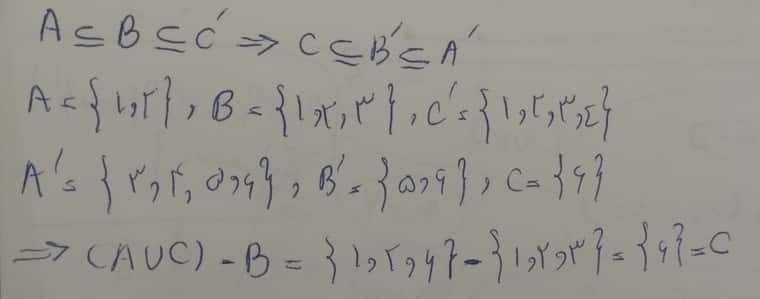 A ⊆ B ⊆ C′ ⇒ C ⊆ B′ ⊆ A′
A = {۱,۲} , B = {۱,۲,۳} , C′ = {۱,۲,۳,٤}
A′ = {۳,۴,۵,۶} , B′ = {۵,۶} , C = {۶}
⇒ (A∪C) - B = {۱,۲,۶} - {۱,۲,۳} = {۶} = C